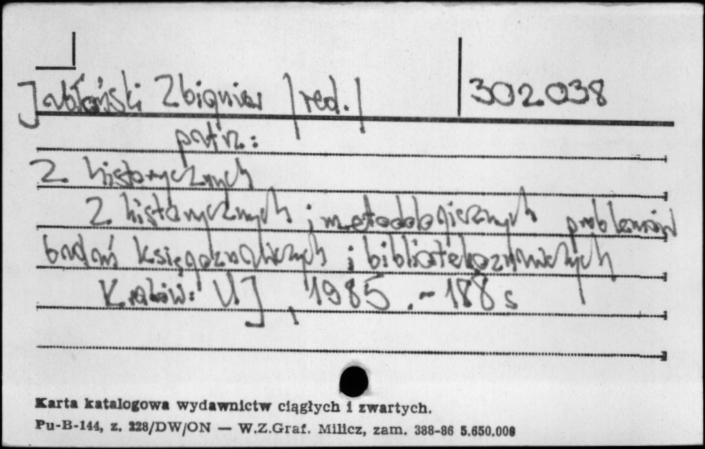 Jabłoński Zbigniew /red./ 302.038
patrz:
Z historycznych
Z historycznych i metodologicznych problemów
badań księgoznawczych i bibliotekoznawczych
Kraków: UJ, 1985. - 188 s
Karta katalogowa wydawnictw ciągłych i zwartych.
Pu-B-144, z. 228/DW/ON — W.Z.Graf. Milicz, zam. 388-86 5.650.000